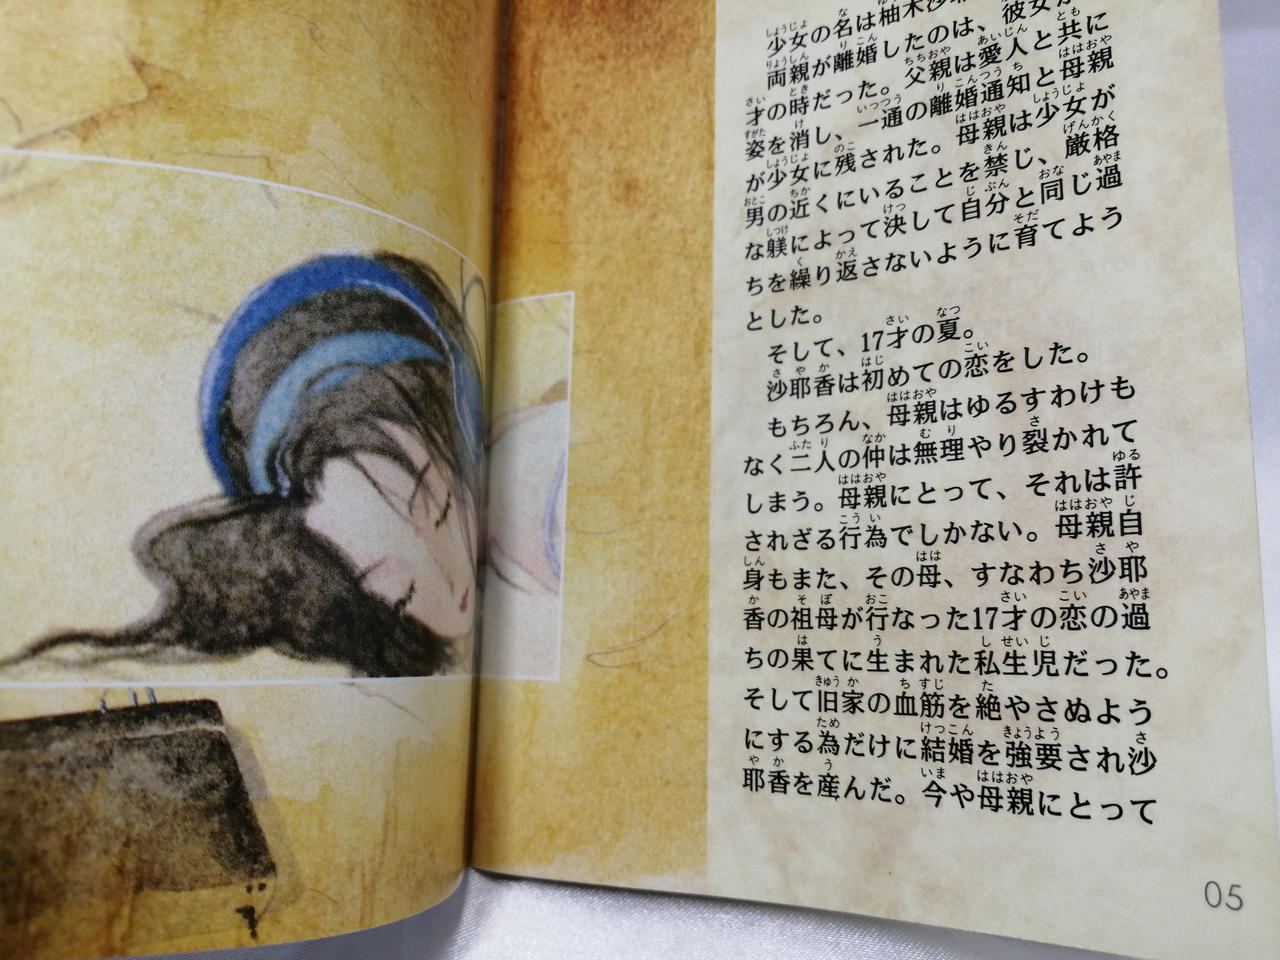 少女の名は柚木沙
両親が離婚したのは、彼女が
才の時だった。父親は愛人と共に
姿を消し、一通の離婚通知と母親
が少女に残された。母親は少女が
男の近くにいることを禁じ、厳格
な躾によって決して自分と同じ過
ちを繰り返さないように育てよう
とした。
そして、17才の夏。
沙耶香は初めての恋をした。
もちろん、母親はゆるすわけも
なく二人の仲は無理やり裂かれて
しまう。母親にとって、それは許
されざる行為でしかない。母親自
身もまた、その母、すなわち沙耶
香の祖母が行なった17才の恋の過
ちの果てに生まれた私生児だった。
そして旧家の血筋を絶やさぬよう
にする為だけに結婚を強要され沙
耶香を産んだ。今や母親にとって
05